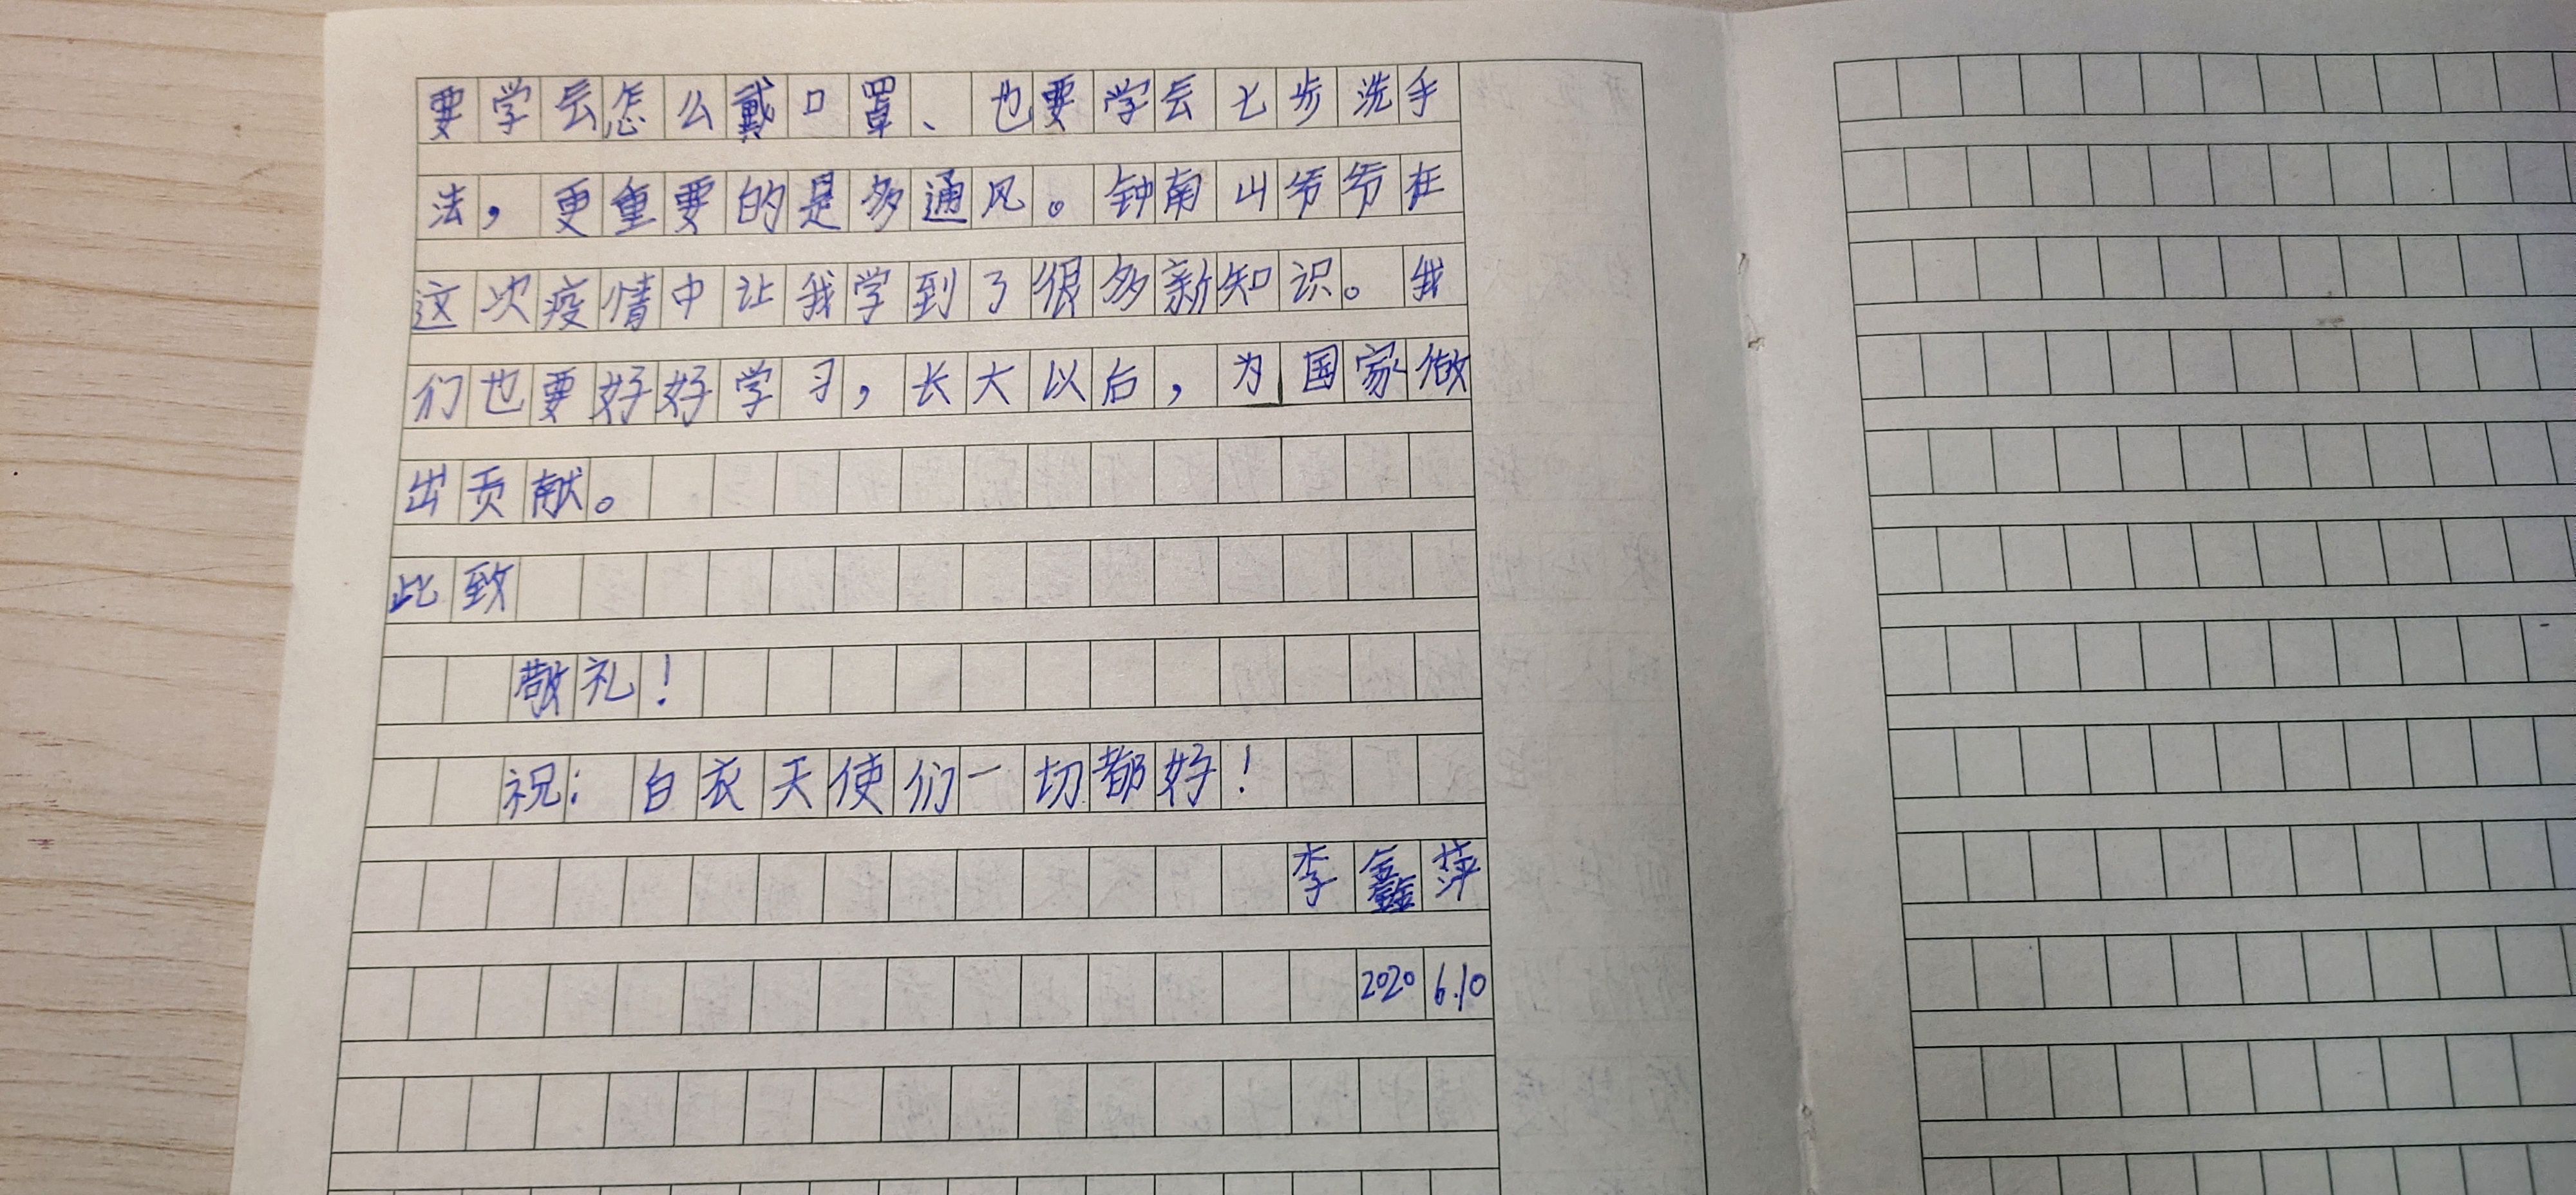 要学会怎么戴口罩、也要学会七步洗手
法，更重要的是多通风。钟南山爷爷在
这次疫情中让我学到了很多新知识。我
们也要好好学习，长大以后，为国家做
出贡献。
此致
敬礼！
祝：白衣天使们一切都好！
李鑫萍
2020 6.10